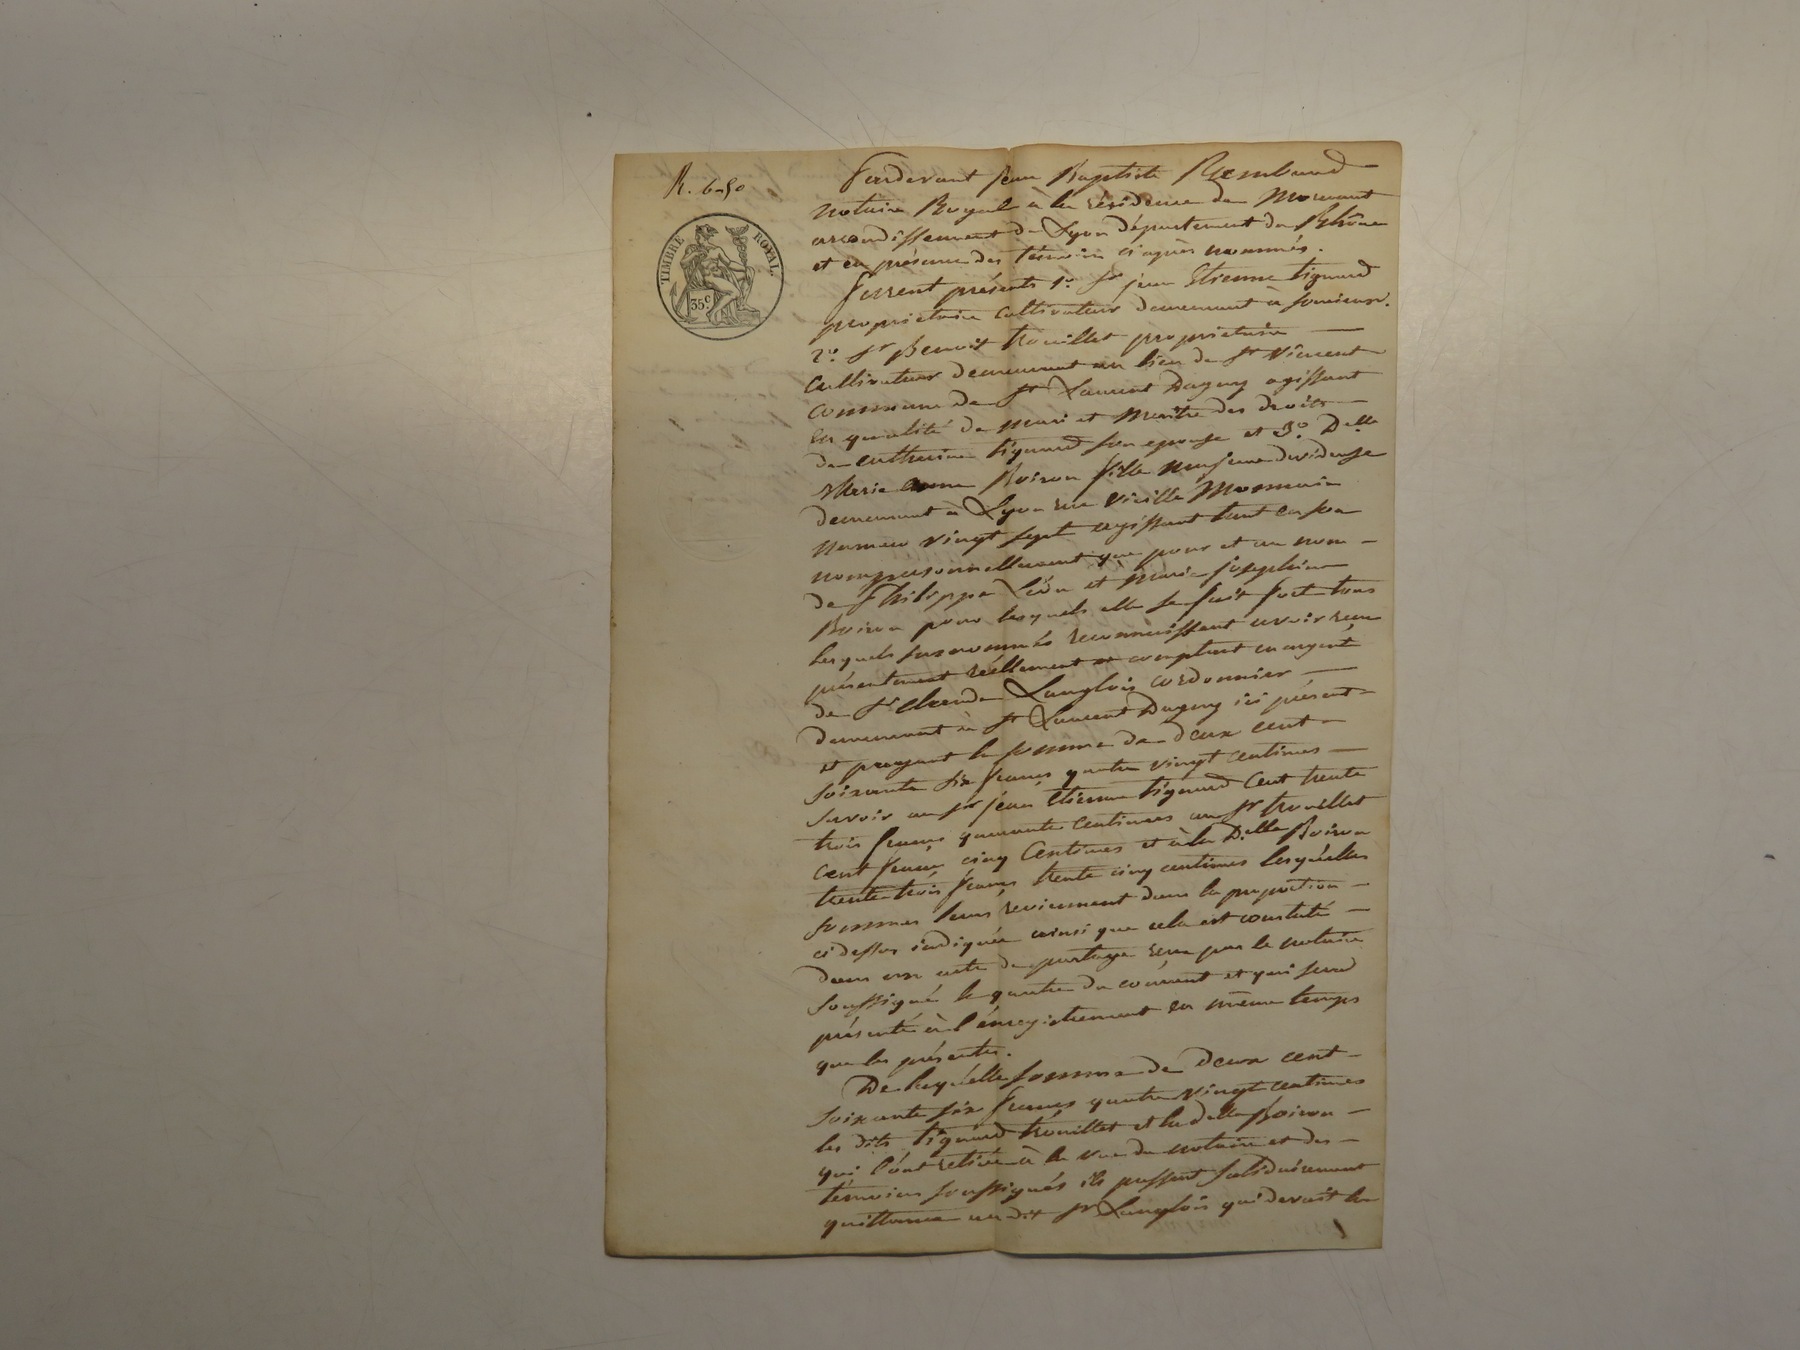 R. 6=50
TIMBRE ROYAL.
35c
Pardevant jean Baptiste Rambaud
notaire Royal à la résidence de Mornant
arrondissement de Lyon département du Rhône
et en présence des témoins ci après nommés.
furent présents 1o. Sr jean Etienne
proprietaire cultivateur demeurant à
2o. Sr Benoit trouillet proprietaire
Cultivateur demeurant au lieu de St Vincent
commune de St Laurent Dagny agissant
en qualité de mari et Maitre des droits
de catherine son epouse et 3o. Delle
Marie anne Boiron fille Majeure devideuse
demeurant à Lyon rue Vieille Monnaie
numero vingt sept agissant tant en son
nom personnellement que pour et au nom
de Philippe Léon et Marie josephine
Boiron pour lesquels elle se fait fort tous
lesquels susnommés reconnaissent avoir reçu
présentement réellement et comptant en argent
de Sr Claude Langlois cordonnier
demeurant à St Laurent Dagny ici présent
et payant la somme de deux cent
soixante six francs quatre vingt centimes
savoir au sr jean Etienne Cent trente
trois francs quarante centimes au Sr trouillet
cent francs cinq Centimes et à la Delle Boiron
trente trois francs trente cinq centimes lesquelles
sommes leurs reviennent dans la proportion
ci dessus indiquée ainsi que cela est constaté
dans un acte de partage reçu par le notaire
soussigné le quatre du courant et qui sera
présenté à l'énregistrement en même temps
que les présentes.
De laquelle somme de Deux cent
soixante six francs quatre vingt centimes
les dits trouillet et la delle Boiron
qui l'ont retirée à la vue du notaire et des
témoins soussignés ils passent solidairement
quittance au dit Sr Langlois qui devait la